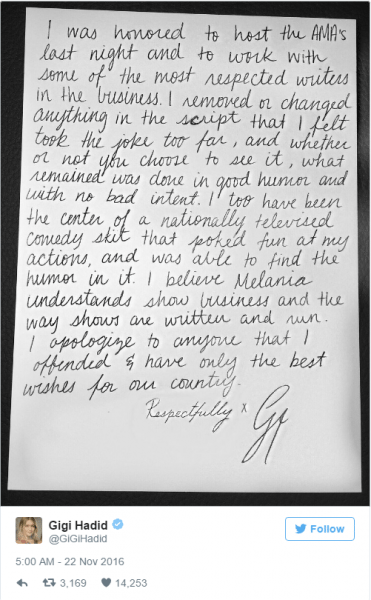 I was honored to host the AMA's
last night and to work with
some of the most respected writers
in the business. I removed or changed
anything in the script that I felt
took the joke too far, and whether
or not you choose to see it, what
remained was done in good humor and
with no bad intent. I too have been
the center of a nationally televised
comedy skit that poked fun at my
actions, and was able to find the
humor in it. I believe Melania
understands show business and the
way shows are written and run.
I apologize to anyone that I
offended & have only the best
wishes for our country.
Respectfully x
Gigi Hadid
@GiGiHadid
Follow
5:00 AM - 22 Nov 2016
3,169
14,253